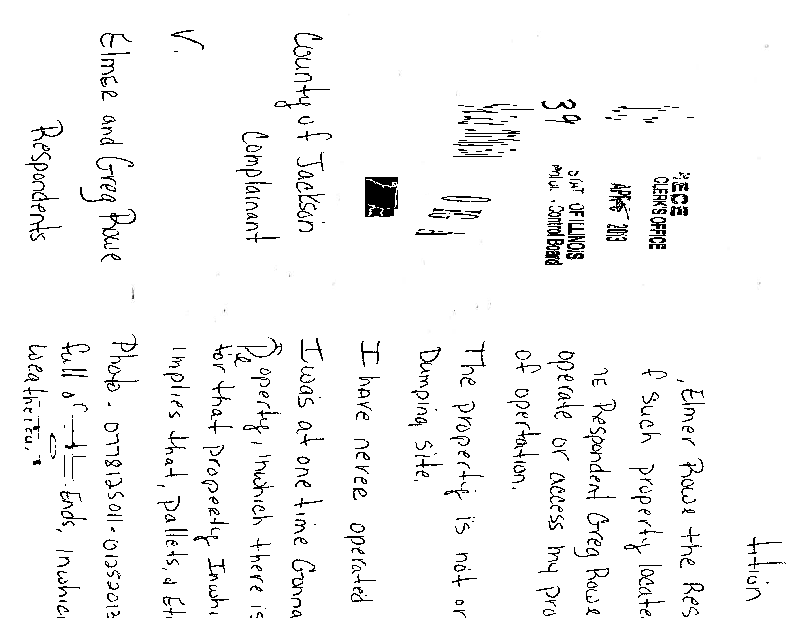 tition
ECE
CLERK'S OFFICE
2013
OF ILLINOIS
Control Board
39
County of Jackson
Complainant
V.
Elmer and Greg Rowe
Respondents
, Elmer Rowe the Res
f such property locate
Respondent Greg Rowe
operate or access my pro
of opertation.
The property is not or
Dumping site.
I have never operated
I was at one time Gonna
Property, inwhich there is
for that property Inwhi
implies that, pallets, & Et
Photo - 0778125011-01252013
full of Ends, inwhic